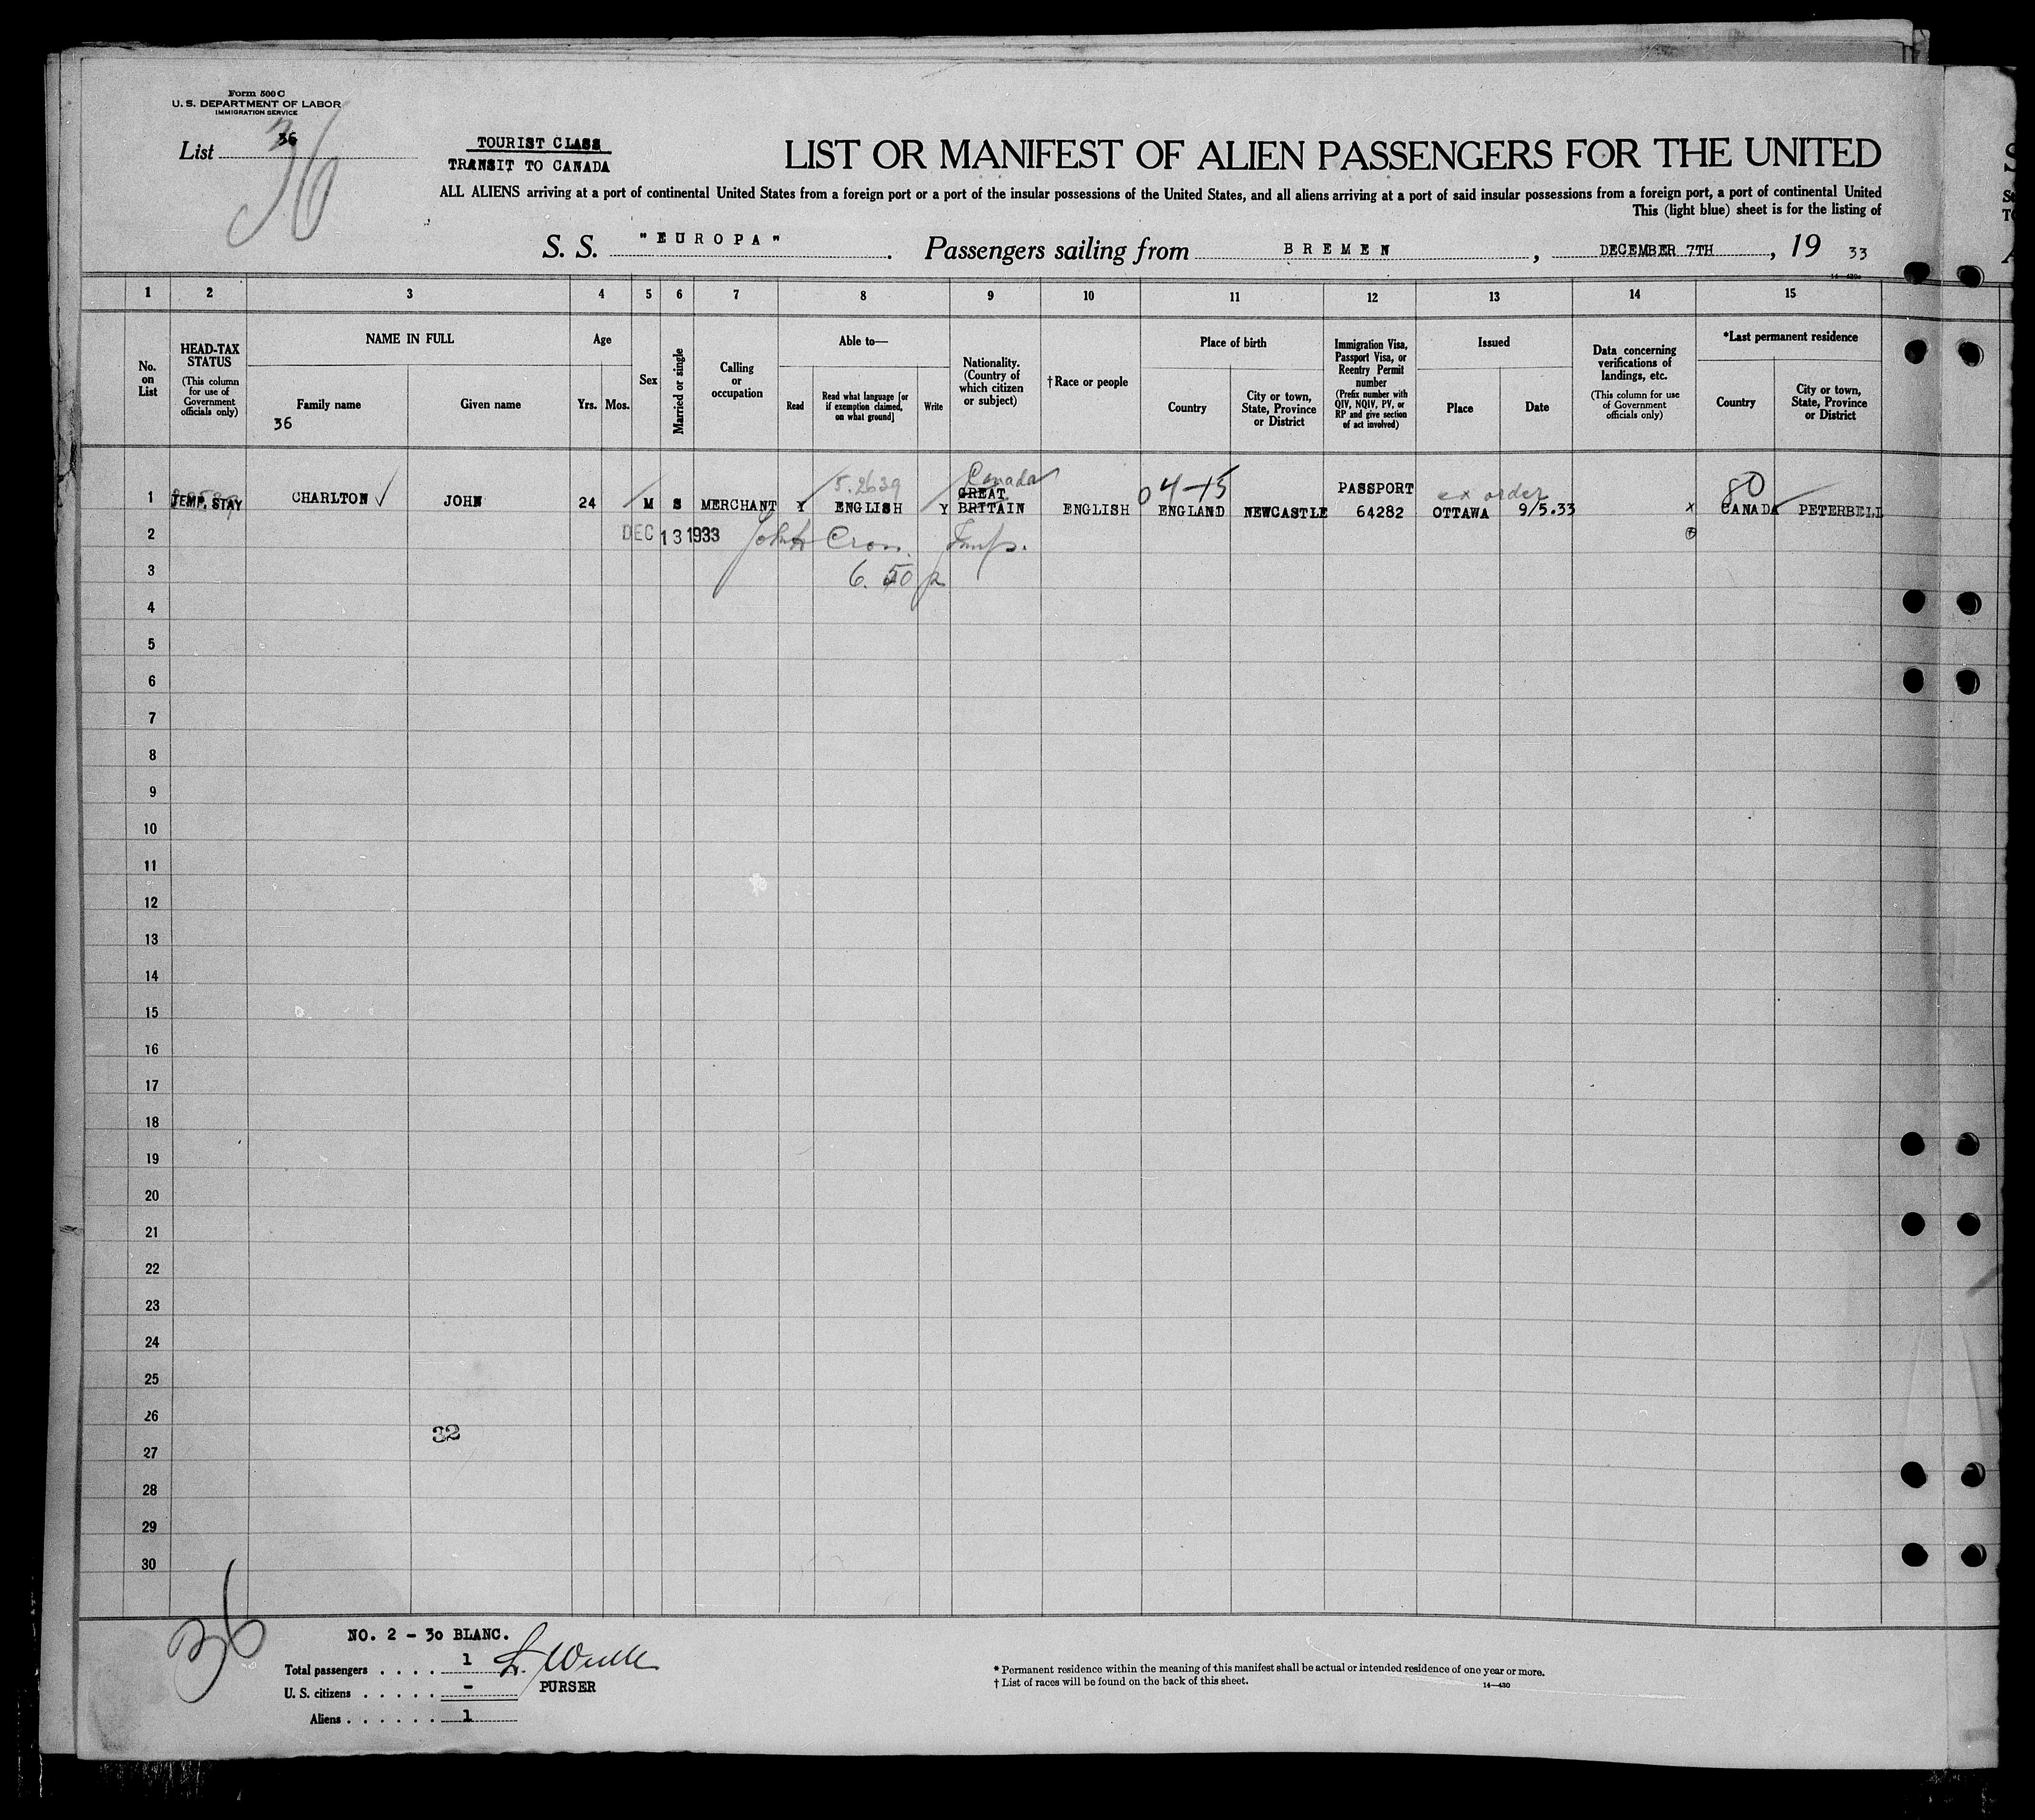 Form 500 C
U. S. DEPARTMENT OF LABOR
IMMIGRATION SERVICE
List 36
36
TOURIST CLASS
TRANSIT TO CANADA
LIST OR MANIFEST OF ALIEN PASSENGERS FOR THE UNITED
ALL ALIENS arriving at a port of continental United States from a foreign port or a port of the insular possessions of the United States, and all aliens arriving at a port of said insular possessions from a foreign port, a port of continental United
This (light blue) sheet is for the listing of
S. S. "EUROPA". Passengers sailing from BREMEN, DECEMBER 7TH, 19 33
1 2 3 4 5 6 7 8 9 10 11 12 13 14 15
No. on List
HEAD-TAX STATUS
(This column for use of Government officials only)
NAME IN FULL
Family name
Given name
36
Age
Yrs. Mos.
Sex
Married or single
Calling or occupation
Able to—
Read
Read what language [or if exemption claimed, on what ground]
Write
Nationality. (Country of which citizen or subject)
†Race or people
Place of birth
Country
City or town, State, Province or District
Immigration Visa, Passport Visa, or Reentry Permit number
(Prefix number with QIV, NQIV, PV, or RP and give section of act involved)
Issued
Place
Date
Data concerning verifications of landings, etc.
(This column for use of Government officials only)
*Last permanent residence
Country
City or town, State, Province or District
5.2639 Canada 04-15 ex order 80
1 TEMP. STAY CHARLTON ✓ JOHN 24 M S MERCHANT Y ENGLISH Y GREAT BRITAIN ENGLISH ENGLAND NEWCASTLE PASSPORT 64282 OTTAWA 9/5.33 x CANADA PETERBELL
2 DEC 13 1933 John Cron
3 6.50 p
4
5
6
7
8
9
10
11
12
13
14
15
16
17
18
19
20
21
22
23
24
25
26
32
27
28
29
30
36
NO. 2 - 30 BLANC.
Total passengers . . . . 1
U. S. citizens . . . . . -
PURSER
Aliens . . . . . . 1
* Permanent residence within the meaning of this manifest shall be actual or intended residence of one year or more.
† List of races will be found on the back of this sheet.
14—430